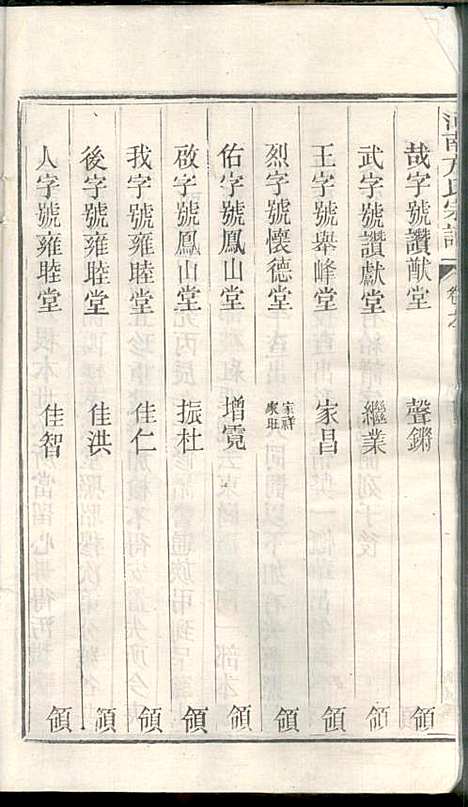 河南方氏宗譜
哉字號讚猷堂 聲鏘 領
武字號讚獻堂 繼業 領
王字號舉峰堂 家昌 領
烈字號懷德堂 家祥 家班 領
佑字號鳳山堂 增霓 領
啟字號鳳山堂 振杜 領
我字號雍睦堂 佳仁 領
後字號雍睦堂 佳洪 領
人字號雍睦堂 佳智 領